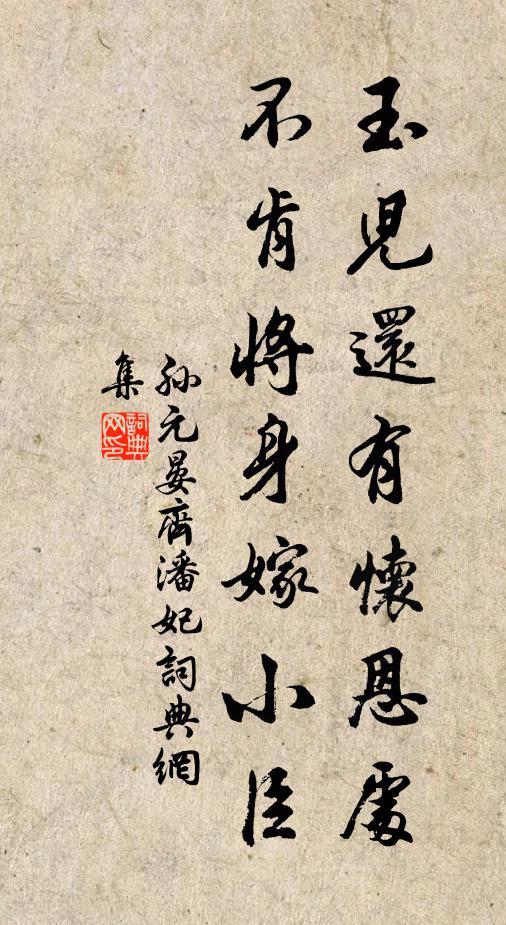 玉兒還有懷恩處
不肯將身嫁小臣
孫元晏齊潘妃詞典網
集
詞典網印